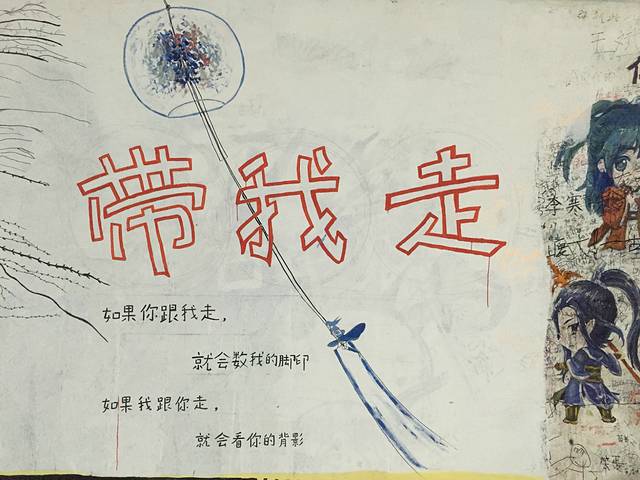 带我走
如果你跟我走，
就会数我的脚印
如果我跟你走，
就会看你的背影
李寒